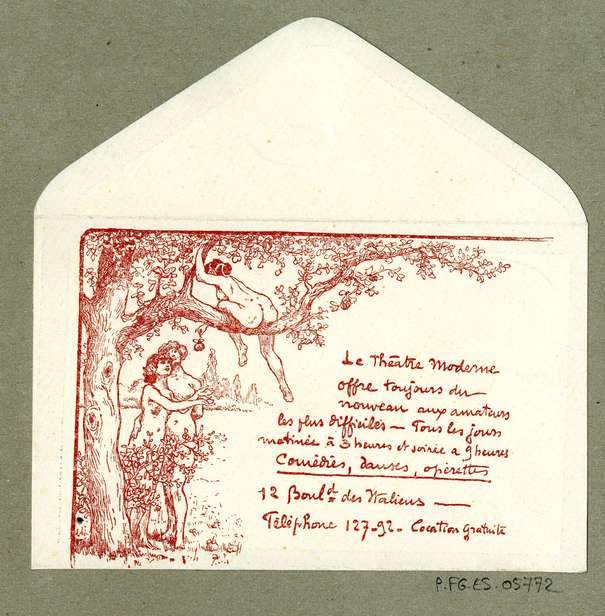 Le Théâtre Moderne
offre toujours du
nouveau aux amateurs
les plus difficiles — Tous les jours
matinée à 3 heures et soirée à 9 heures
Comédies, danses, opérettes
12 Boulᵈ des Italiens —
Téléphone 127-92 - Location gratuite
P.FG.ES.05772